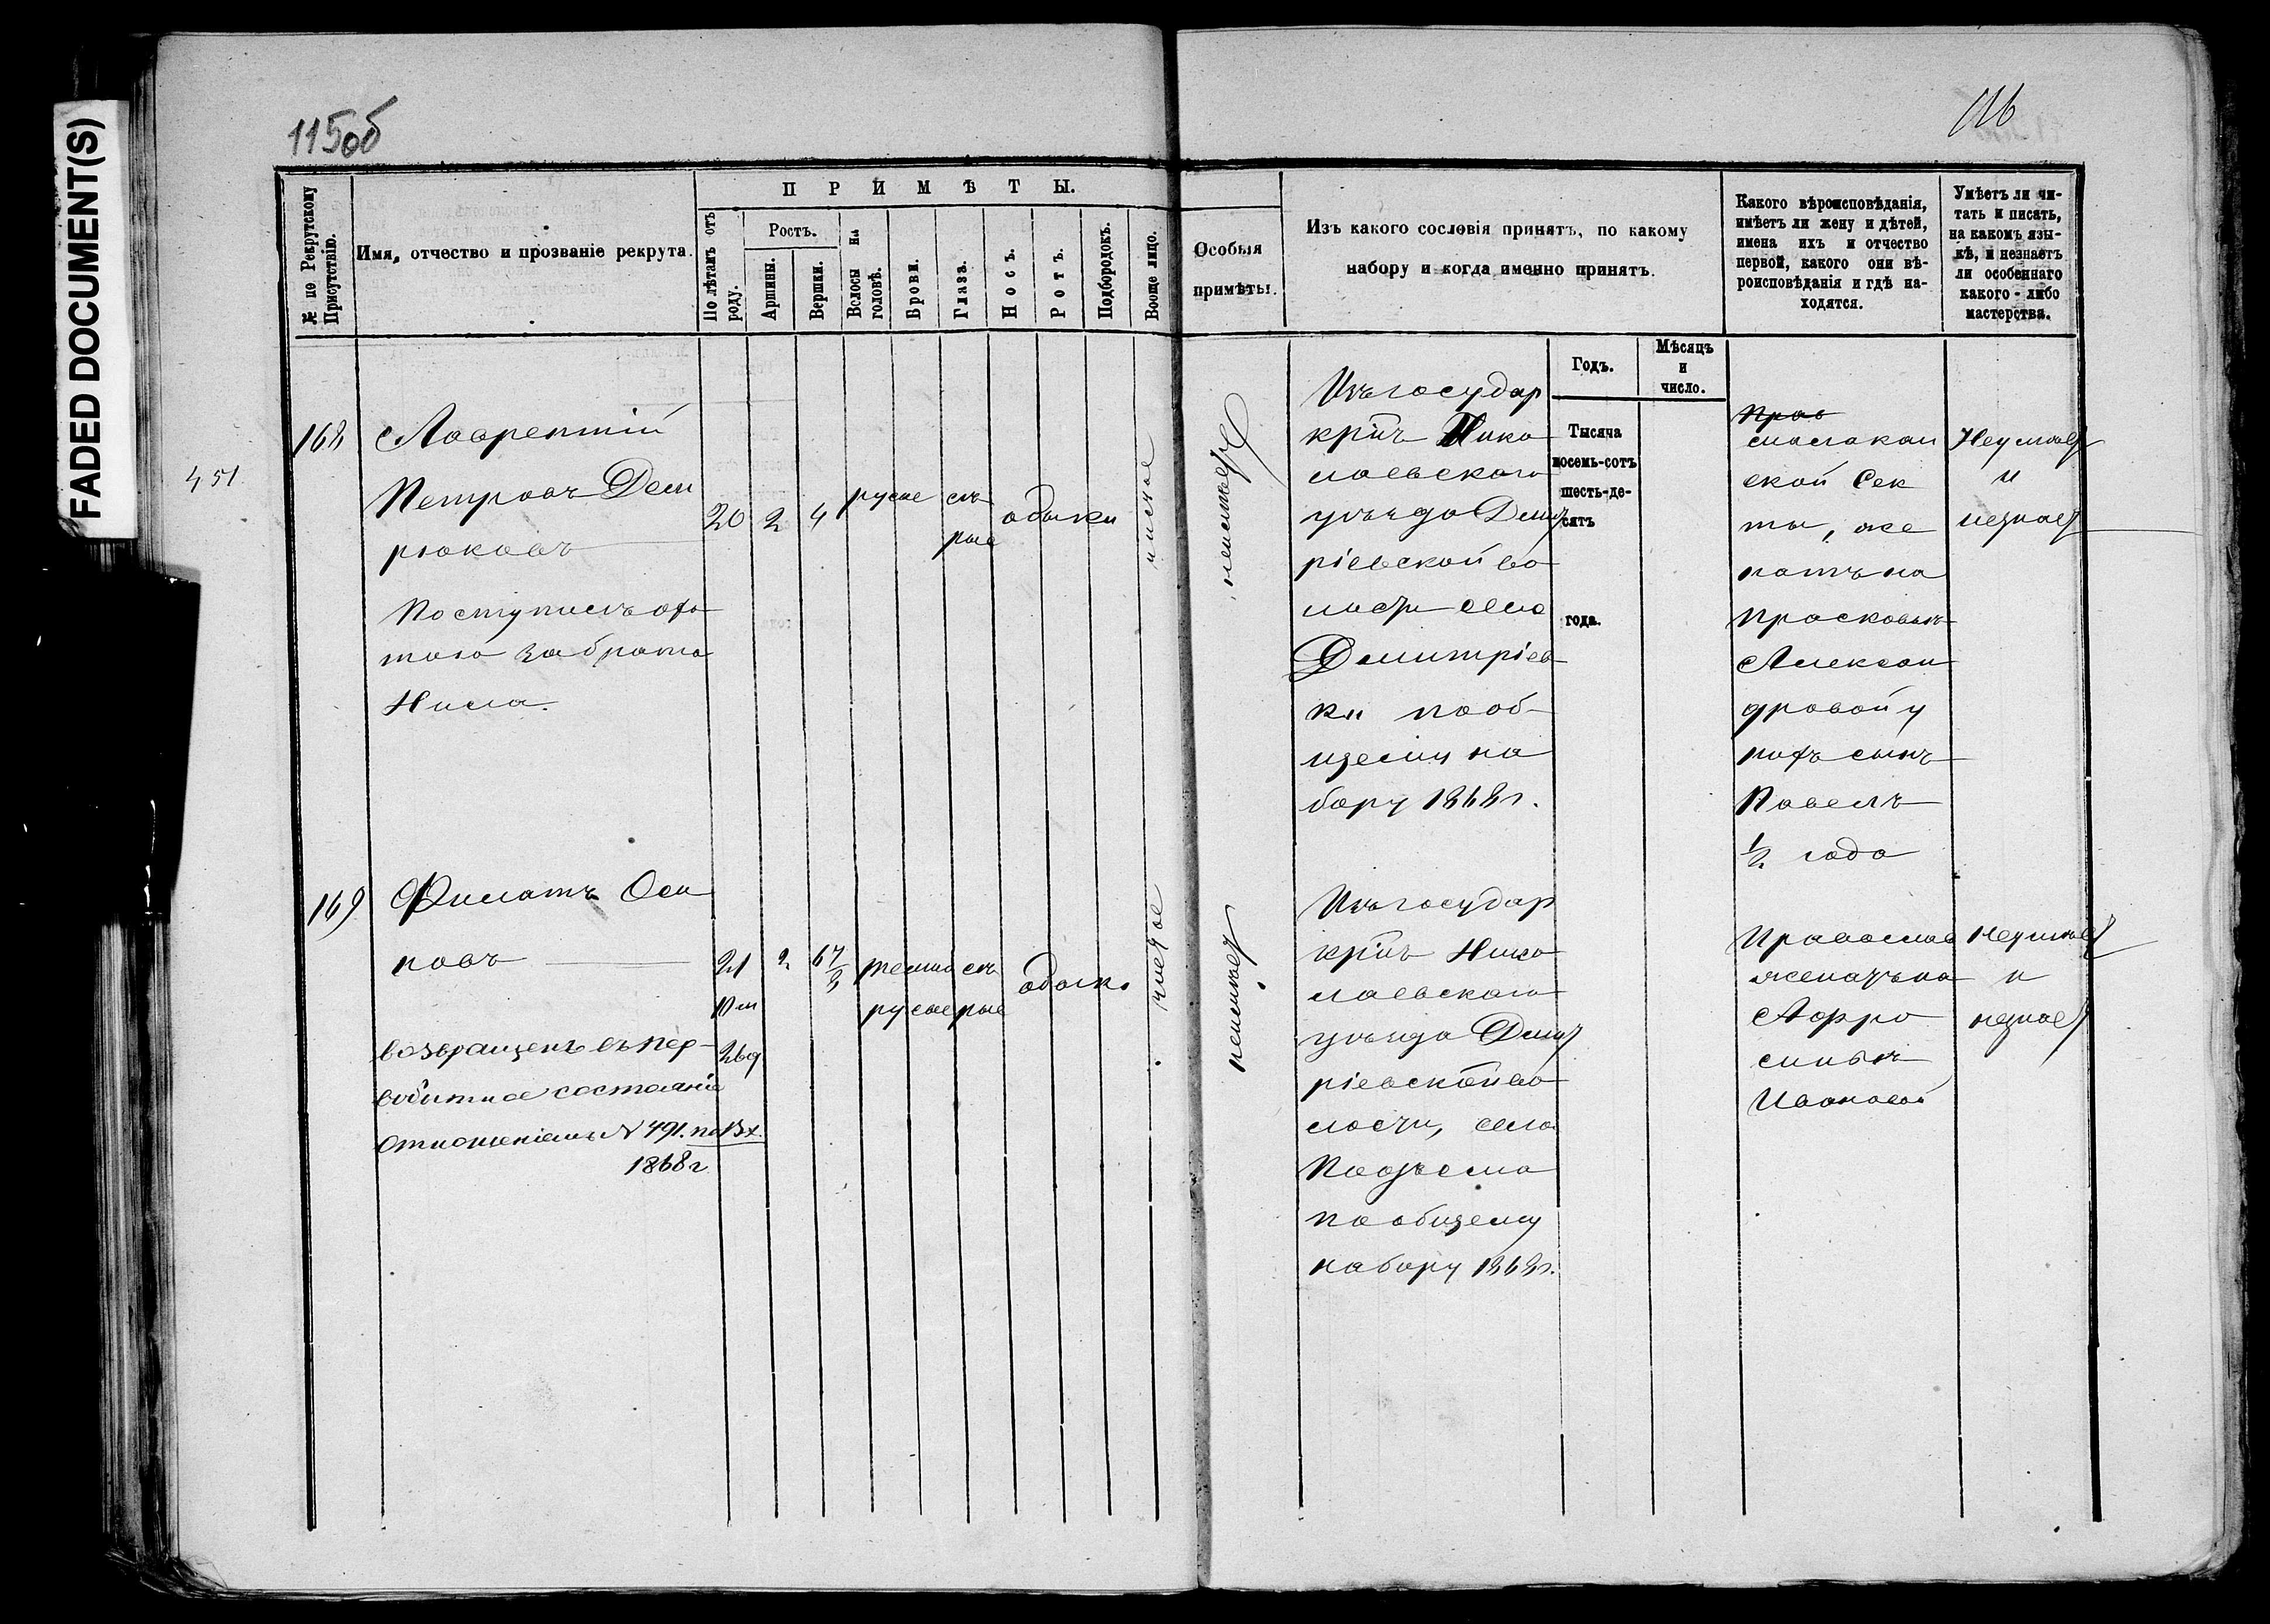 FADED DOCUMENT(S)
115об
116
№ по Рекрутскому Присутствію.
Имя, отчество и прозваніе рекрута.
ПРИМѢТЫ.
По лѣтамъ отъ роду.
Ростъ.
Аршины.
Вершки.
Волосы на головѣ.
Брови.
Глаза.
Носъ.
Ротъ.
Подбородокъ.
Вообще лицо.
Особыя
примѣты.
Изъ какого сословія принятъ, по какому
набору и когда именно принятъ.
Какого вѣроисповѣданія,
имѣетъ ли жену и дѣтей,
имена ихъ и отчество
первой, какого они вѣ-
роисповѣданія и гдѣ на-
ходятся.
Умѣетъ ли чи-
тать и писать,
на какомъ язы-
кѣ, и незнаетъ
ли особеннаго
какого-либо
мастерства.
Годъ.
Мѣсяцъ
и
число.
Тысяча
восемь-сотъ
шесть-де-
сятъ
года.
451
168
Лаврентій
Петровъ Дем
рюковъ
Поступилъ охо
тою за брата
Нила.
20
2
4
русые
сѣ
рые
обыкн
чистое
неимѣет
Изъ государ
кр̃нъ Нико
лаевскаго
уѣзда Дмит
ріевской во
лости села
Дмитріев
ки по об
щему на
бору 1868 г.
Прав
молокан
ской сек
ты, же
натъ на
Прасковьѣ
Алексан
дровой у
нихъ сынъ
Павелъ
1/2 года
Неумѣет
и
незнает
169
Филатъ Оси
повъ
возвращенъ въ пер-
вобытное состояніе
отношеніемъ N 491. по Вх.
1868 г
21
10 м
26 д
2
6 7/8
темно
русые
сѣ
рые
обыкн
чистое
неимѣет
Изъ государ
кр̃нъ Нико
лаевскаго
уѣзда Дмит
ріевской во
лости, села
Подъема
по общему
набору 1868 г.
Православ
женатъ на
Афро
синьѣ
Ивановой
Неумѣет
и
незнает